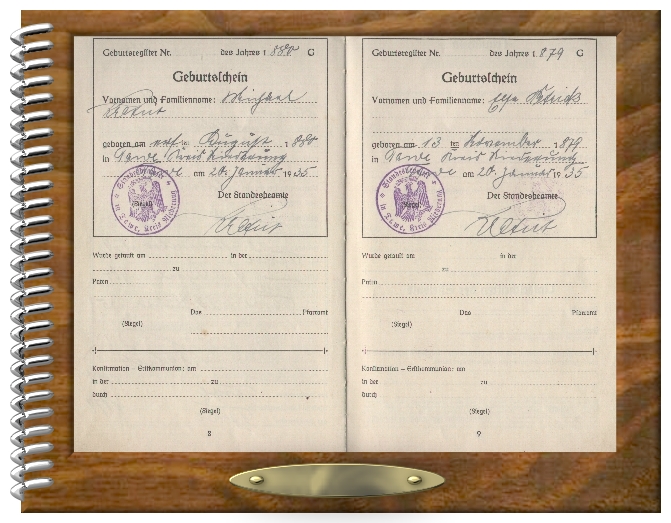 Geburtsregister Nr. des Jahres 1880 G
Geburtsschein
Vornamen und Familienname: Michael
geboren am ten August 1880
in Tawe Kreis Niederung
am 20. Januar 1935
Der Standesbeamte
(Siegel)
Wurde getauft am in der
zu
Paten
Das Pfarramt
(Siegel)
Konfirmation – Erstkommunion: am
in der zu
durch
(Siegel)
8
Geburtsregister Nr. des Jahres 1879 G
Geburtsschein
Vornamen und Familienname:
geboren am 13 ten November 1879
in Tawe Kreis Niederung
am 20. Januar 1935
Der Standesbeamte
(Siegel)
Wurde getauft am in der
zu
Paten
Das Pfarramt
(Siegel)
Konfirmation – Erstkommunion: am
in der zu
durch
(Siegel)
9